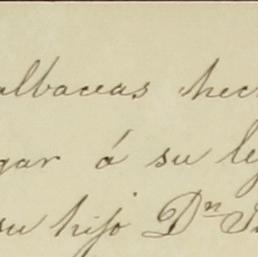 albaceas hec
gar á su le
su hijo Dn